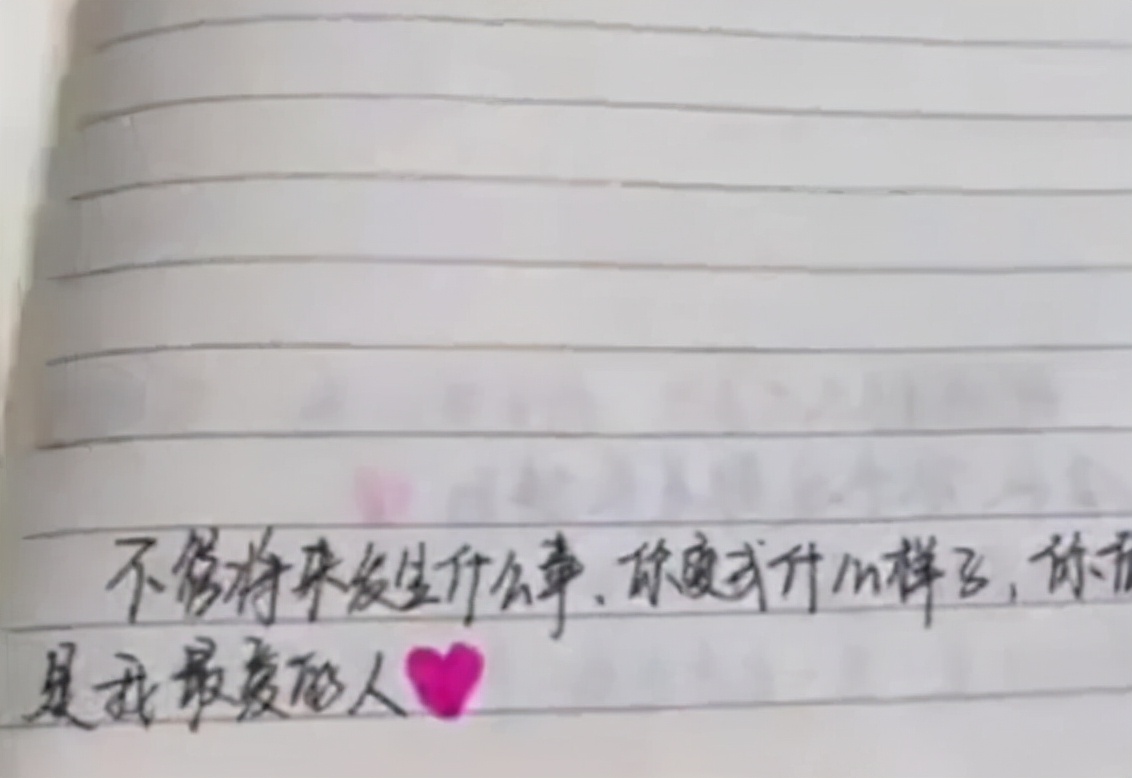 不管将来发生什么事，你变成什么样子，你
是我最爱的人